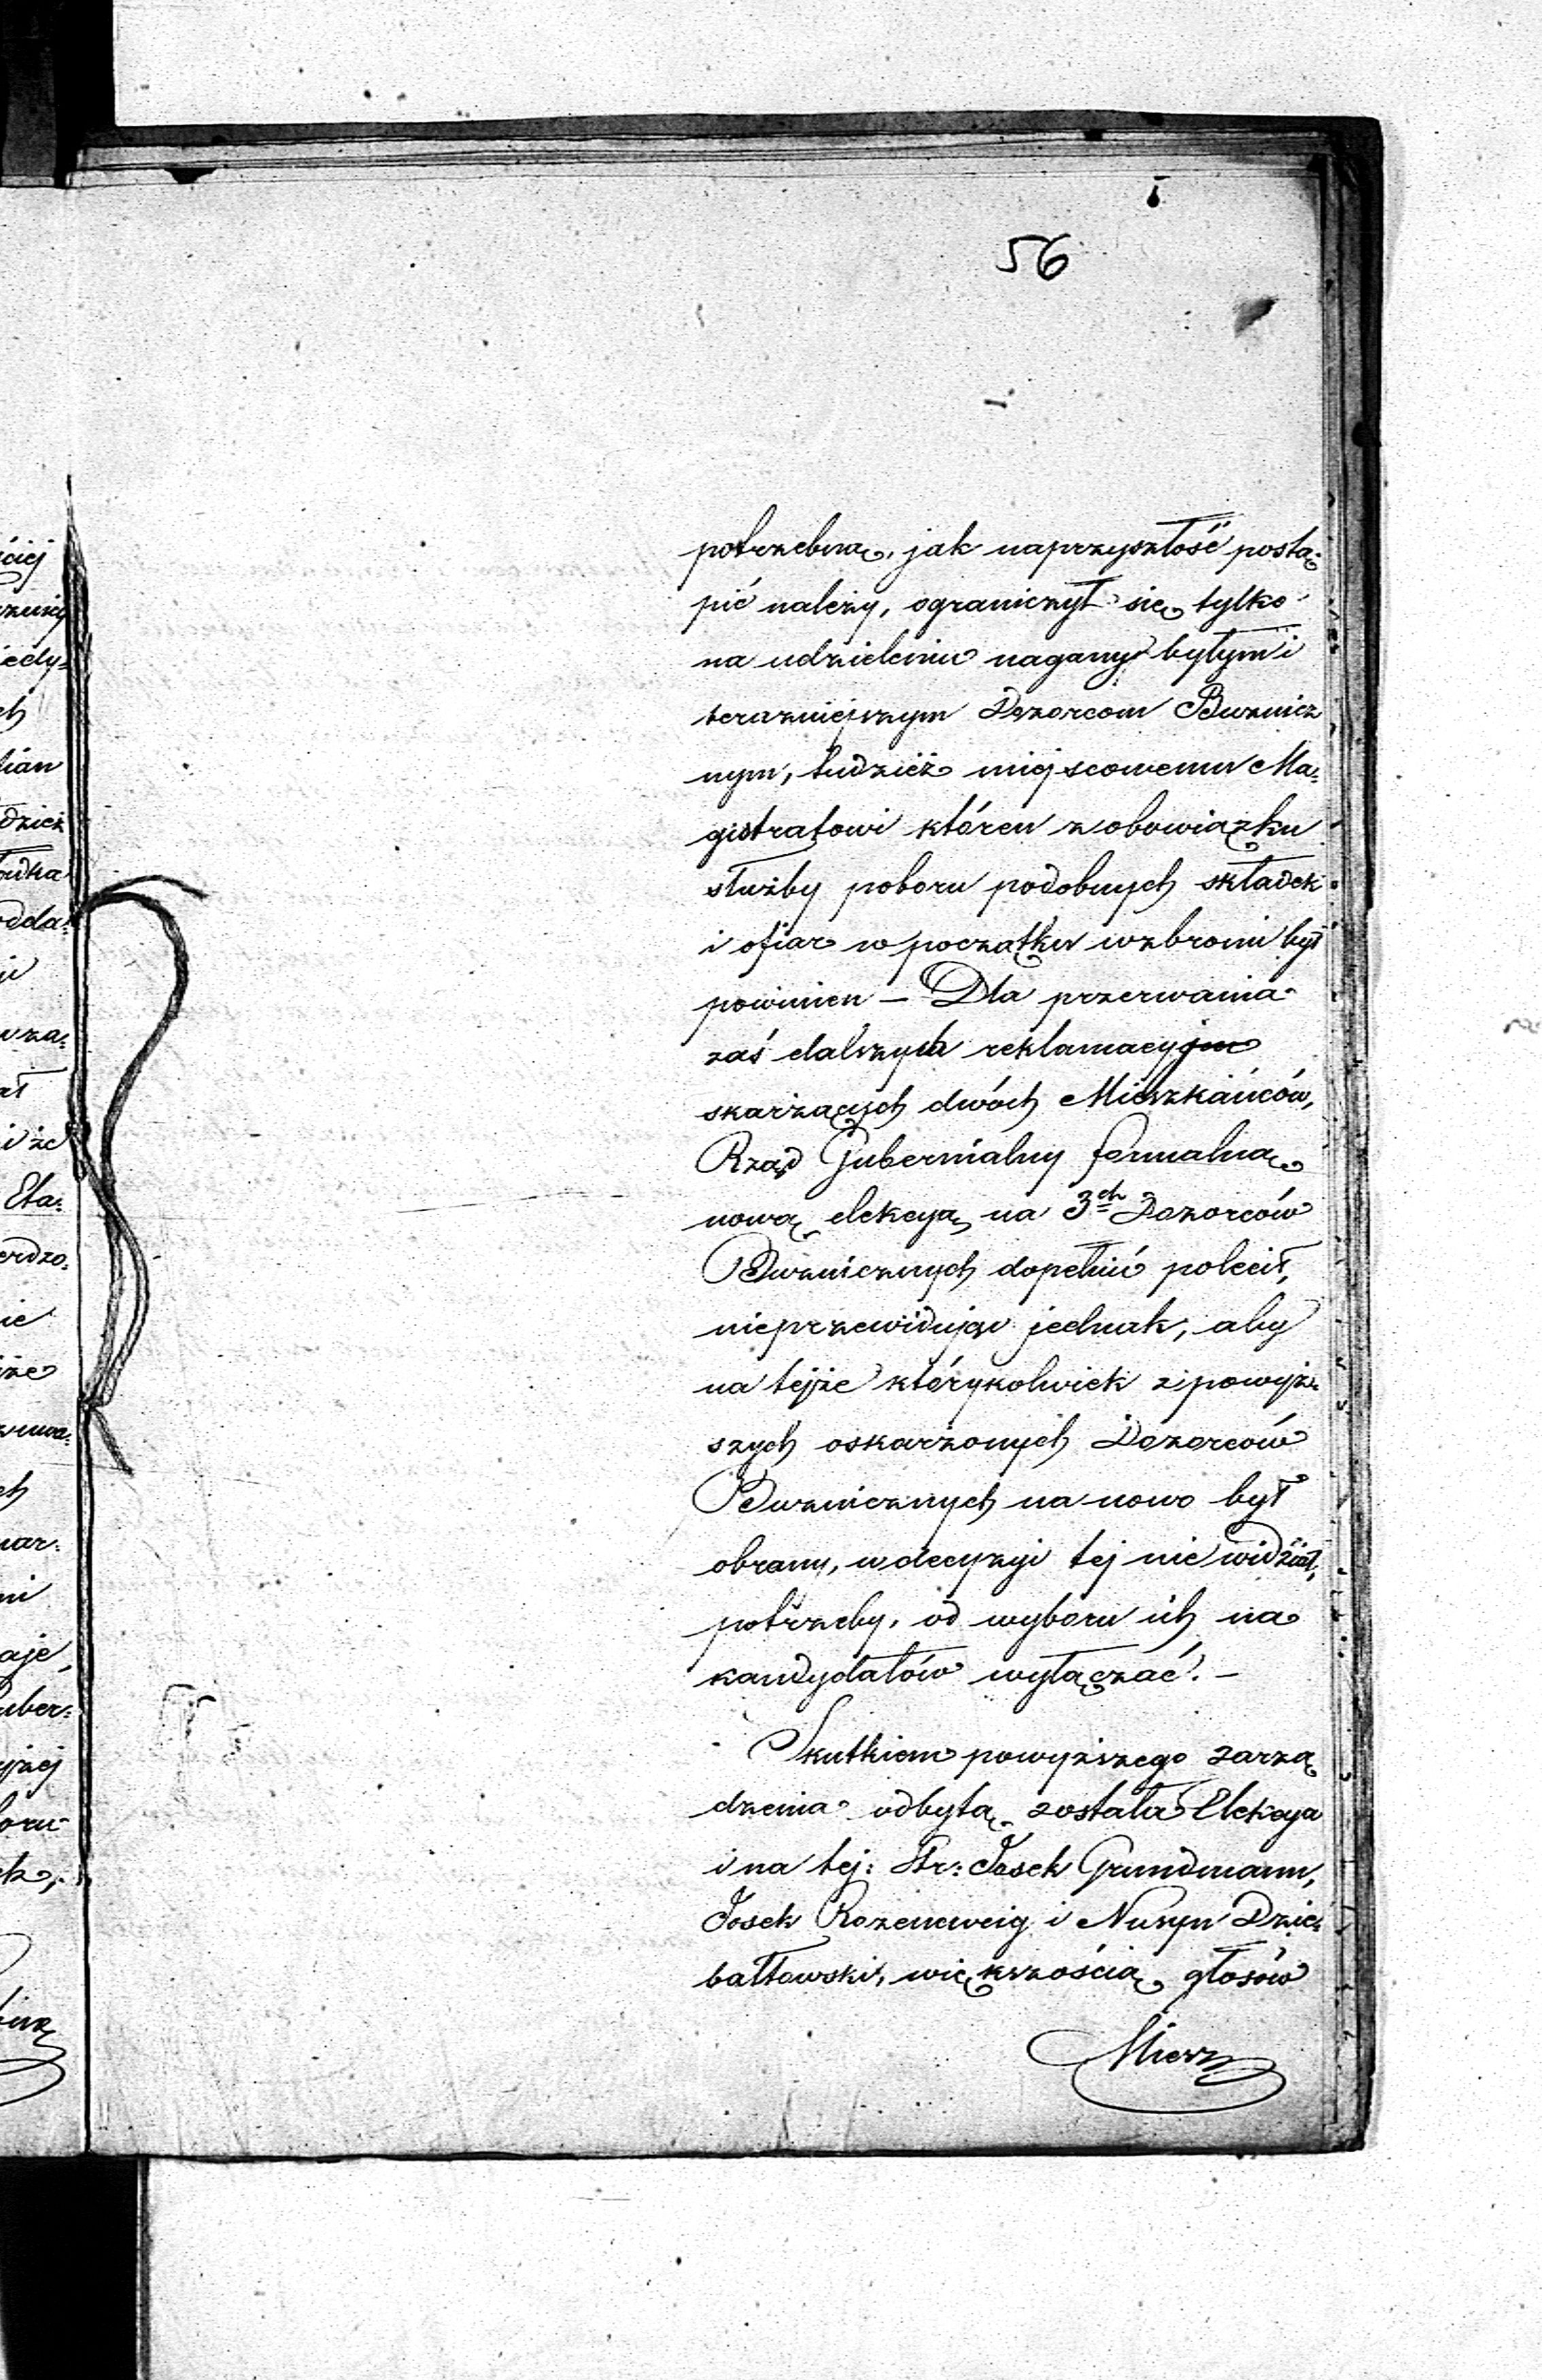 56
potrzebną, jak naprzyszłość postą:
pić należy, ograniczył się tylko
na udzieleniu nagany byłym i
teraźniejszym Dozorcom Bużnicz
nym, tudzież miejscowemu Ma:
gistratowi któren z obowiązku
służby poboru podobnych składek
i ofiar w początku wzbronić był
powinien — Dla przerwania
zaś dalszych reklamacyj
skarżących dwóch Mieszkańców,
Rząd Gubernialny formalną
nową elekcyą na 3ch Dozorców
Bużnicznych dopełnić polecił,
nieprzewidując jednak, aby
na tejże którykolwiek z powyż:
szych oskarżonych Dozorców
Bużnicznych na nowo był
obrany, w decyzyi tej nie widział
potrzeby, od wyboru ich na
kandydatów wyłączać. —
Skutkiem powyższego zarzą
dzenia odbytą została Elekcya
i na tej: Str: Josek Grundmann,
Josek Rozencweig i Nusyn Dzie:
bałtowski, większością głosów
ściej
iedy:
ch
dzież
odda:
w za:
ał
i że
Eta:
erdzo:
ie
iże
ch
mi
aje
uber:
yższej
oru